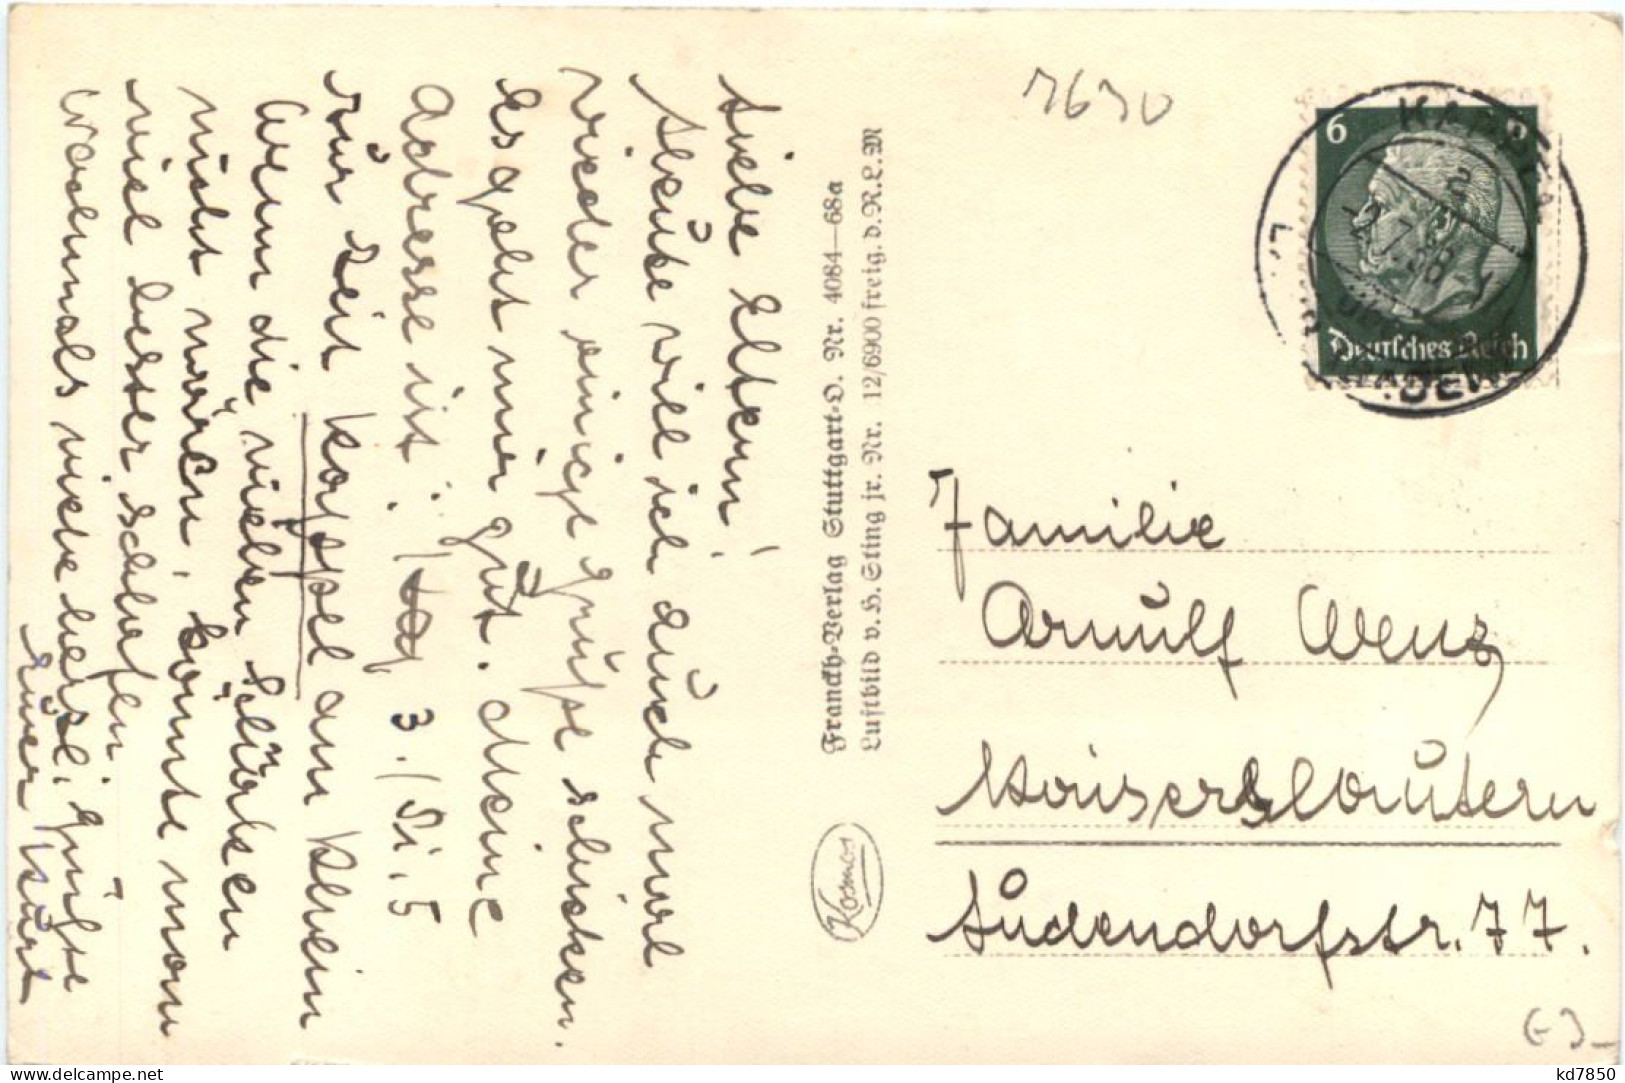 Liebe Eltern!
Heute will ich auch mal
wieder einige Grüße schicken.
Es geht mir gut. Meine
Adresse ist: 3./Pi. 5
zur Zeit Kappel am Rhein
Wenn die vielen Schnaken
nicht wären, könnte man
viel besser schlafen
Nochmals viele herzl. Grüße
Euer Kurt
Franckh-Verlag Stuttgart-O. Nr. 4084—68a
Luftbild v. H. Sting fr. Nr. 12/6900 freig. d. R.L.M
Kosmos
7630
6
Deutsches Reich
Familie
Arnulf Wenz
Kaiserslautern
Ludendorfstr. 77.
kd7850